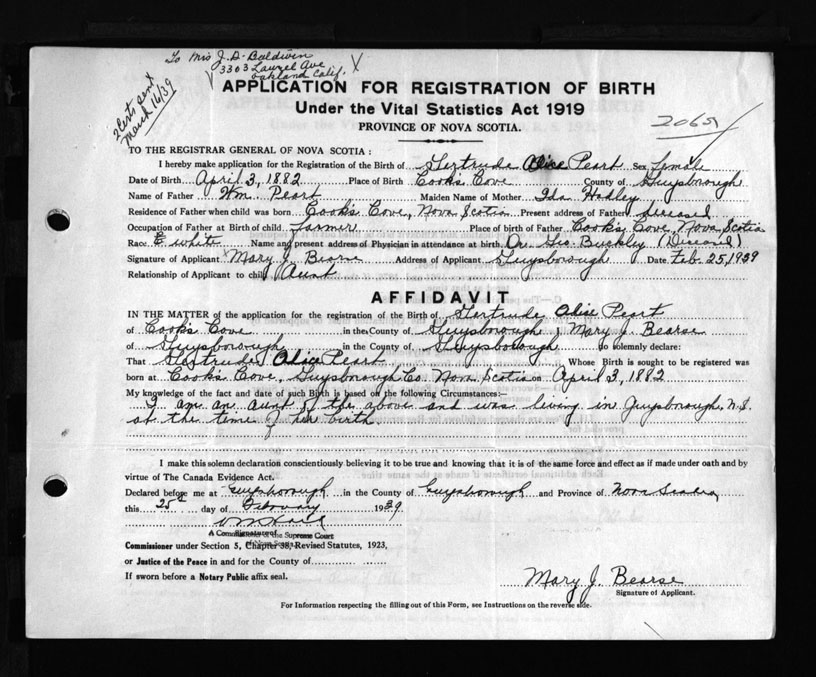 To Mrs J. D. Baldwin
3303 Laurel Ave
Oakland Calif.
2 Certs sent
March 16/39
APPLICATION FOR REGISTRATION OF BIRTH
Under the Vital Statistics Act 1919
PROVINCE OF NOVA SCOTIA.
2065
TO THE REGISTRAR GENERAL OF NOVA SCOTIA:
I hereby make application for the Registration of the Birth of Gertrude Alice Peart Sex Female
Date of Birth April 3, 1882 Place of Birth Cook's Cove County of Guysborough
Name of Father Wm. Peart Maiden Name of Mother Ida Hadley
Residence of Father when child was born Cook's Cove, Nova Scotia Present address of Father deceased
Occupation of Father at Birth of child farmer Place of birth of Father Cook's Cove, Nova Scotia
Race white Name and present address of Physician in attendance at birth Dr. Geo. Buckley (Deceased)
Signature of Applicant Mary J. Bearse Address of Applicant Guysborough Date Feb. 25, 1939
Relationship of Applicant to child Aunt
AFFIDAVIT
IN THE MATTER of the application for the registration of the Birth of Gertrude Alice Peart
of Cook's Cove in the County of Guysborough I Mary J. Bearse
of Guysborough in the County of Guysborough do solemnly declare:
That Gertrude Alice Peart Whose Birth is sought to be registered was
born at Cook's Cove, Guysborough Co. Nova Scotia on April 3, 1882
My knowledge of the fact and date of such Birth is based on the following Circumstances:—
I am an aunt of the above and was living in Guysborough, N.S.
at the time of her birth
I make this solemn declaration conscientiously believing it to be true and knowing that it is of the same force and effect as if made under oath and by
virtue of The Canada Evidence Act.
Declared before me at Guysborough in the County of Guysborough and Province of Nova Scotia
this 25 day of February 1939
A Commissioner of the Supreme Court
of Nova Scotia
Commissioner under Section 5, Chapter 38, Revised Statutes, 1923,
or Justice of the Peace in and for the County of
If sworn before a Notary Public affix seal.
Mary J. Bearse
Signature of Applicant.
For Information respecting the filling out of this Form, see Instructions on the reverse side.